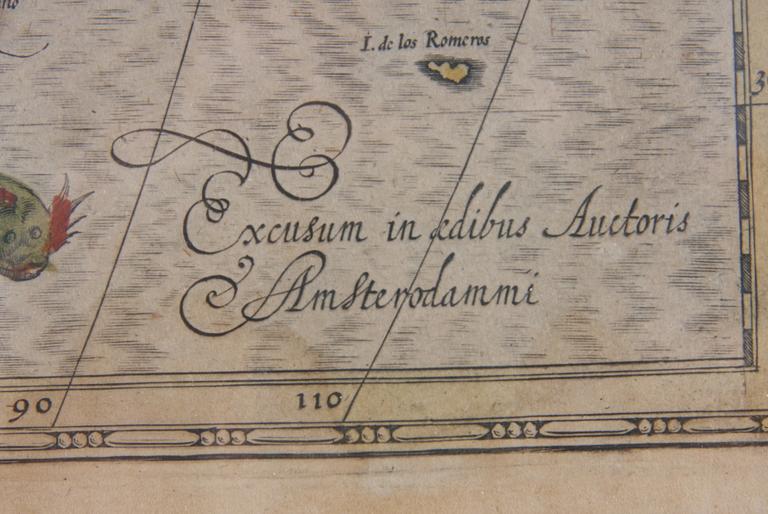 I. de los Romeros
Excusum in ædibus Auctoris
Amsterodammi
90
110